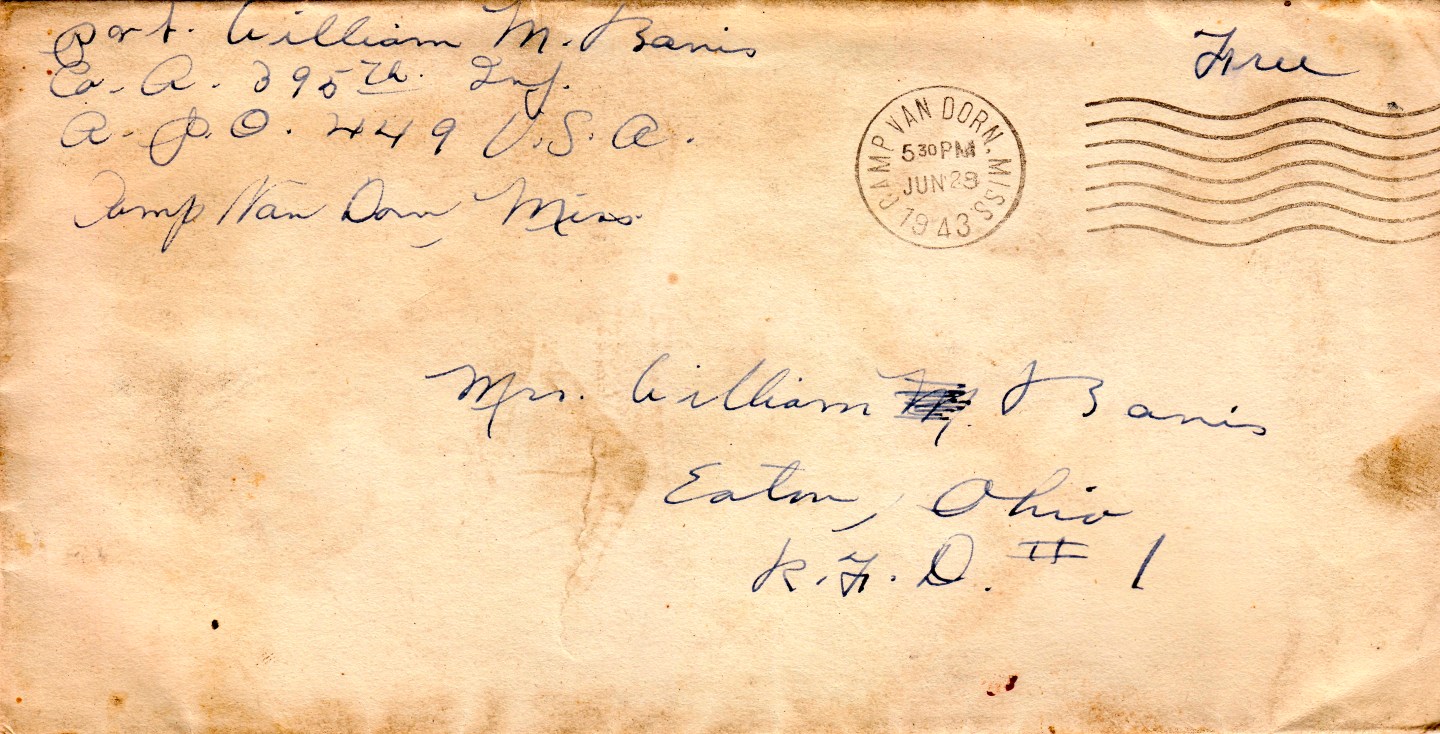 Pvt. William M. Banis
Co. A. 395th. Inf.
A. P.O. 449 U.S.A.
Camp Van Dorn, Miss.
Free
CAMP VAN DORN, MISS
5 30 PM
JUN 28
1943
Mrs. William M. Banis
Eaton, Ohio
R.F.D. # 1